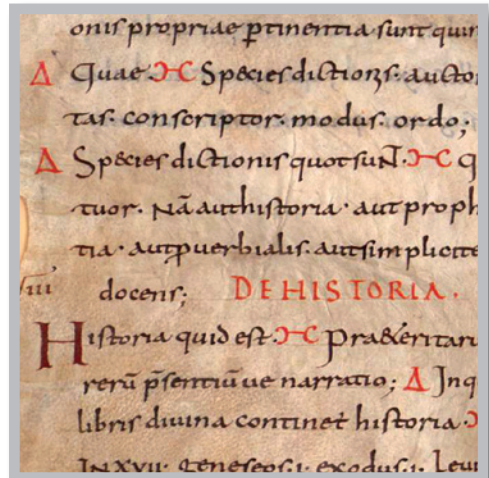 onis propriae ptinentia sunt quin
Δ Quae. Ɔ-C Species dictionis. aucto
tas. conscriptor. modus. ordo;
Δ Species dictionis quot sunt. Ɔ-C q
tuor. Nā aut historia. aut proph
tia. aut puerbialis. aut simplicite
iii docens; DE HISTORIA.
Historia quid est. Ɔ-C Praeteritaru
rerū psentiū ue narratio; Δ In q
libris diuina continet historia.
IN XVII. Geneseos. i. exodus. i. Leui